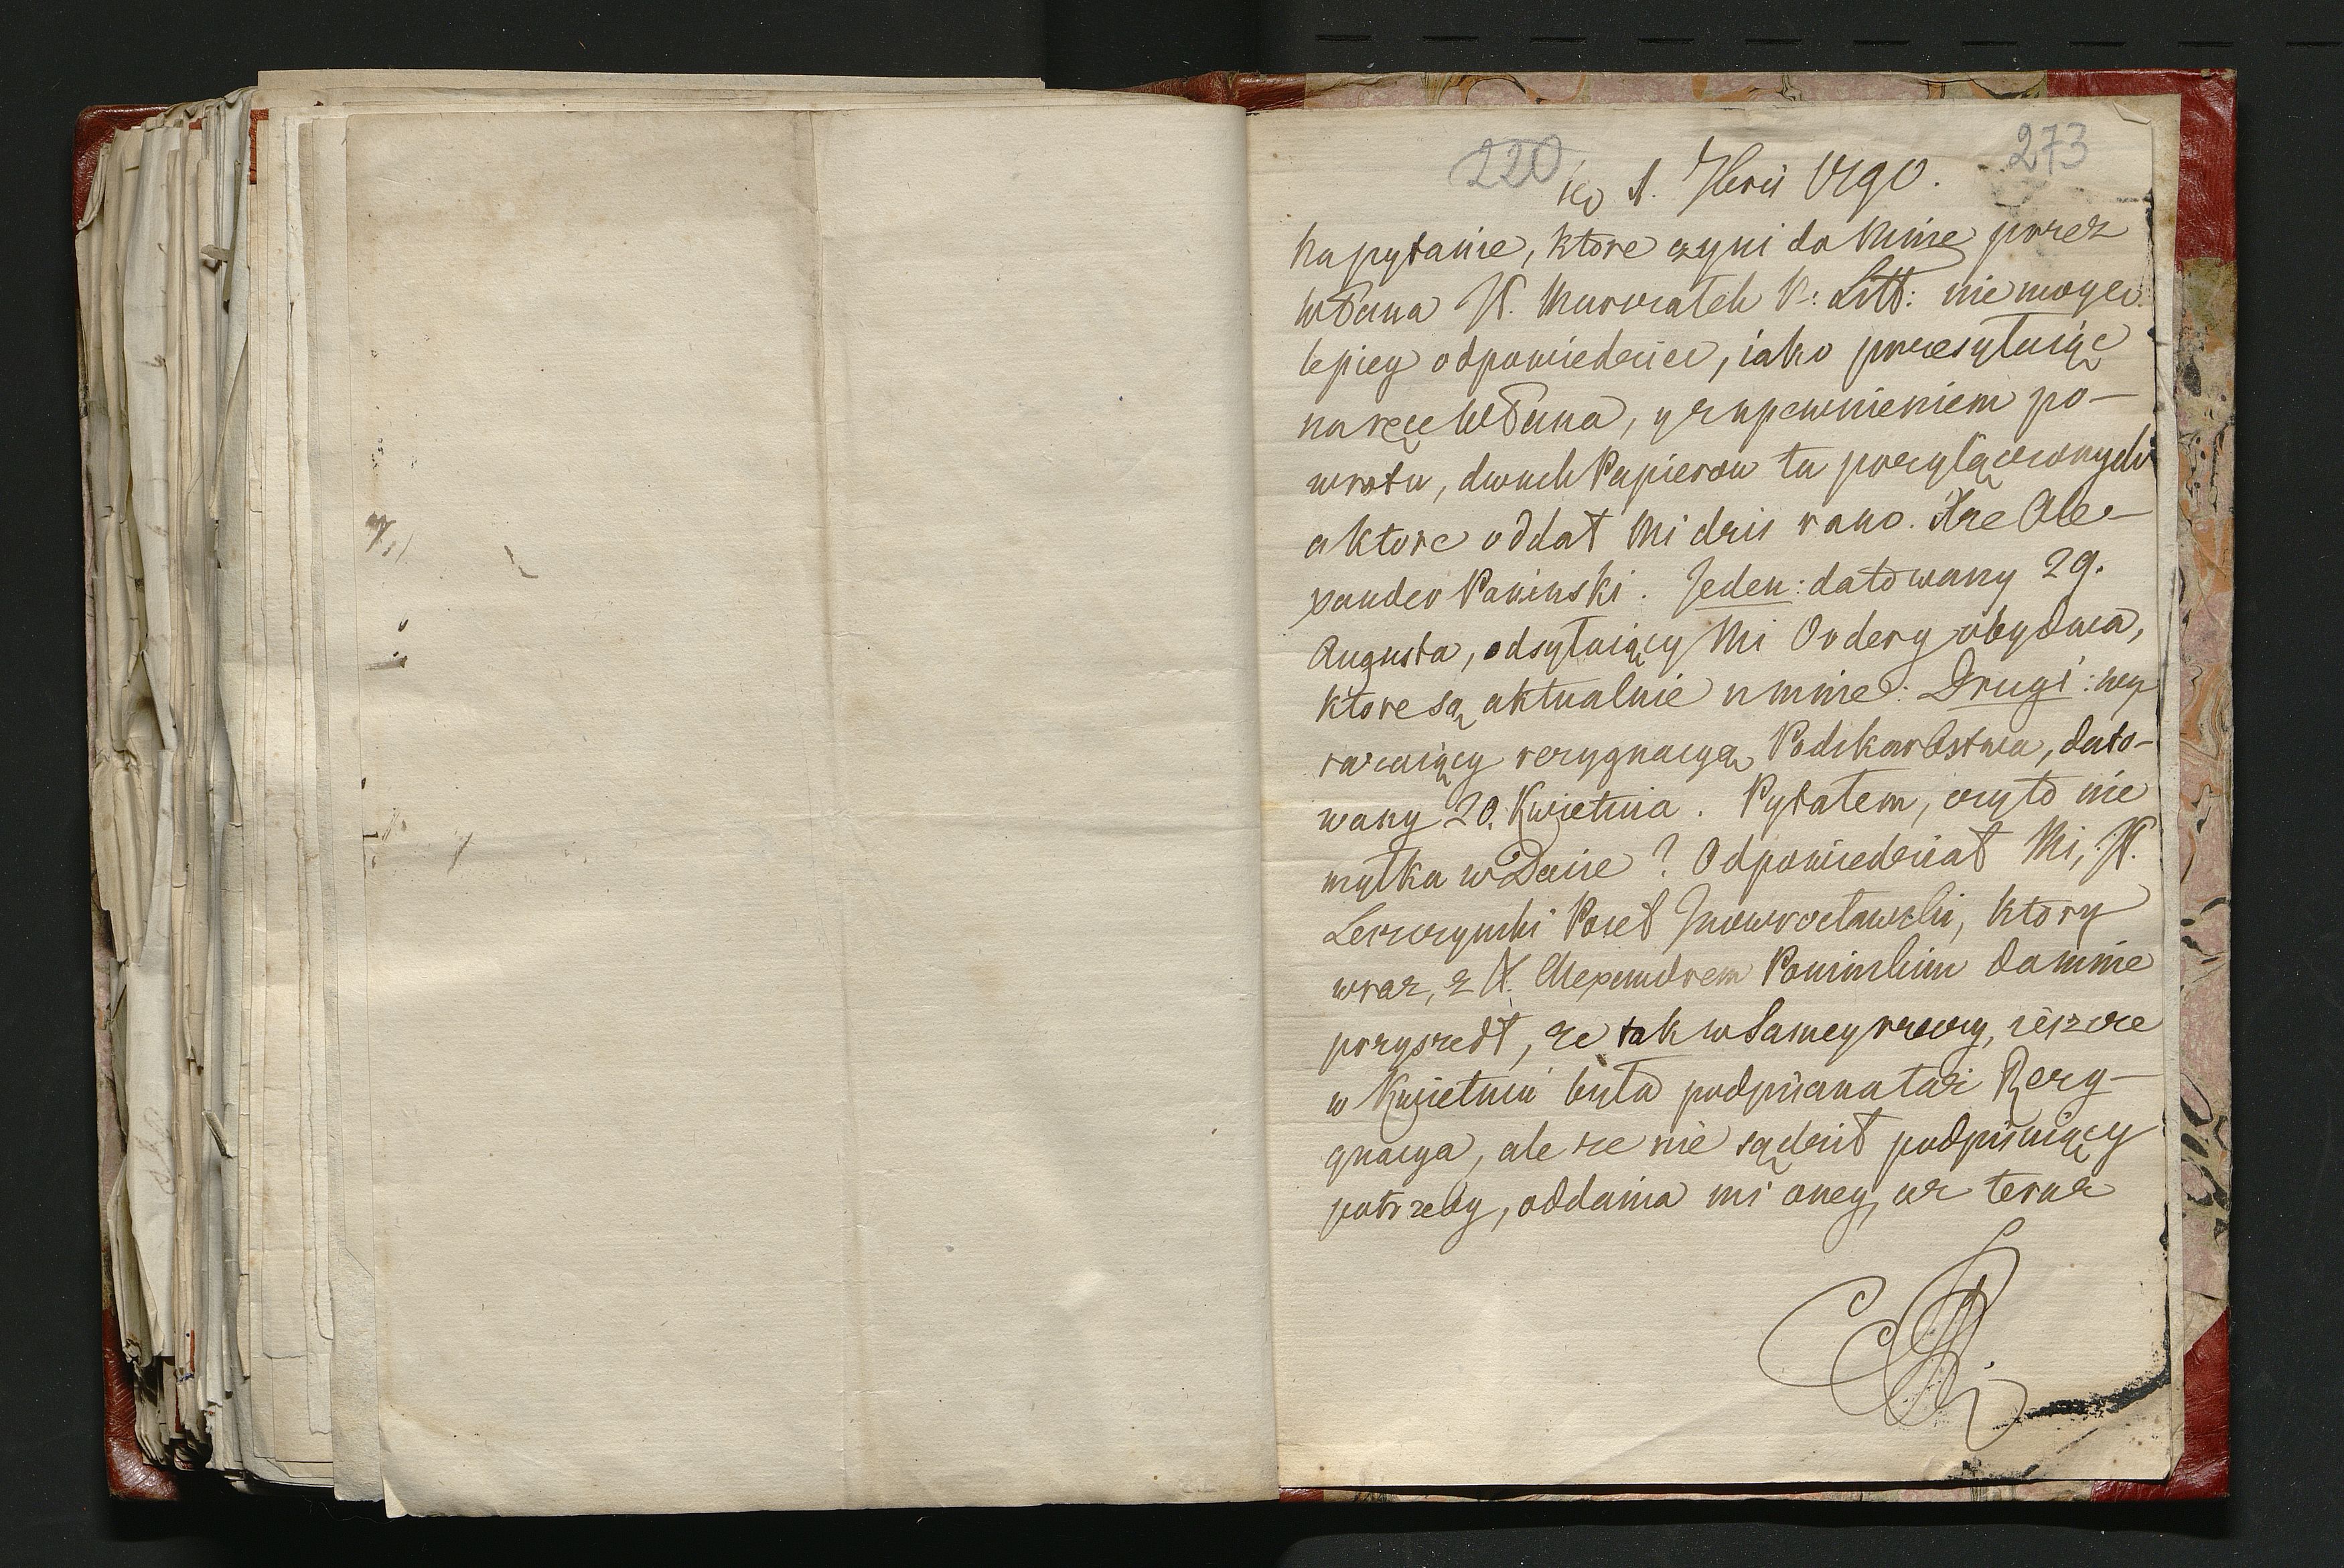 220
273
1. 7bris 1790.
na pytanie, ktore czyni do Mnie przez
WPana X. Marszałek K: Litt: nie mogę
lepiey odpowiedzieć, iako przesyłaiąc
na ręce WPana, y z upewnieniem po-
wrotu, dwuch Papierow tu przyłączonych
a ktore oddał Mi dzis rano Xże Ale-
xander Poninski. Jeden: datowany 29.
Augusta, odsyłaiący Mi Ordery obydwa,
ktore są aktualnie u mnie: Drugi: wy
rażaiący rezygnacyą Podskarbstwa, dato-
wany 20. Kwietnia. Pytałem, czy to nie
myłka w Dacie? Odpowiedział Mi, X.
Leszczynski Poseł Inowrocławski, ktory
wraz, z X. Alexandrem Poninskim do mnie
przyszedł, że tak w samey rzeczy, ieszcze
w Kwietniu była podpisana taż Rezy-
gnacya, ale że nie sądził podpisuiący
potrzeby, oddania mi oney, aż teraz